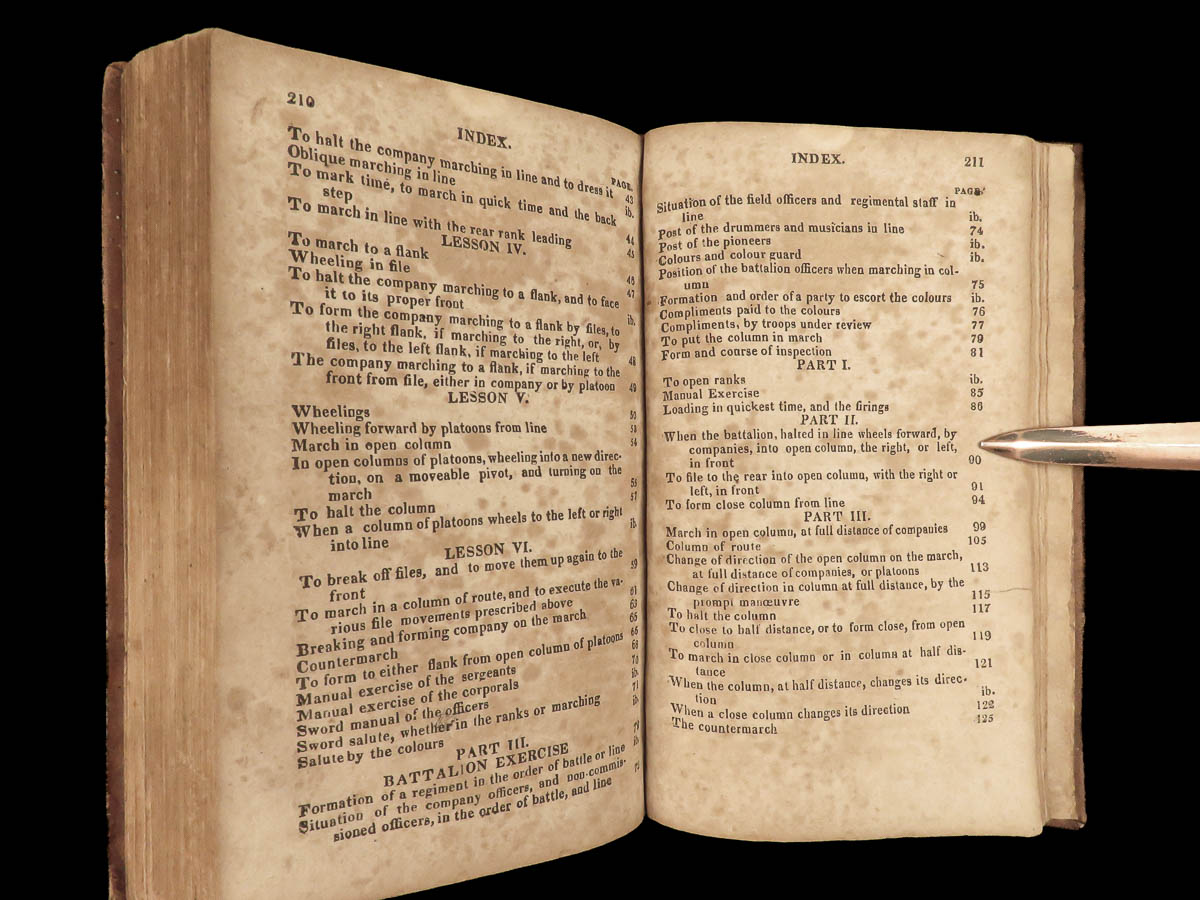 210
INDEX.
PAGE.
To halt the company marching in line and to dress it 43
Oblique marching in line ib.
To mark time, to march in quick time and the back
step 44
To march in line with the rear rank leading 45
LESSON IV.
To march to a flank 46
Wheeling in file 47
To halt the company marching to a flank, and to face
it to its proper front ib.
To form the company marching to a flank by files, to
the right flank, if marching to the right, or, by
files, to the left flank, if marching to the left 48
The company marching to a flank, if marching to the
front from file, either in company or by platoon 49
LESSON V.
Wheelings 50
Wheeling forward by platoons from line 53
March in open column 54
In open columns of platoons, wheeling into a new direc-
tion, on a moveable pivot, and turning on the
march 55
To halt the column 57
When a column of platoons wheels to the left or right
into line ib.
LESSON VI.
To break off files, and to move them up again to the
front 59
To march in a column of route, and to execute the va-
rious file movements prescribed above 61
Breaking and forming company on the march 63
Countermarch 65
To form to either flank from open column of platoons 66
Manual exercise of the sergeants 68
Manual exercise of the corporals 70
Sword manual of the officers ib.
Sword salute, whether in the ranks or marching 71
Salute by the colours ib.
PART III.
BATTALION EXERCISE
Formation of a regiment in the order of battle or line
Situation of the company officers, and non-commis-
sioned officers, in the order of battle, and line
INDEX. 211
PAGE.
Situation of the field officers and regimental staff in
line ib.
Post of the drummers and musicians in line 74
Post of the pioneers ib.
Colours and colour guard ib.
Position of the battalion officers when marching in col-
umn 75
Formation and order of a party to escort the colours ib.
Compliments paid to the colours 76
Compliments, by troops under review 77
To put the column in march 79
Form and course of inspection 81
PART I.
To open ranks ib.
Manual Exercise 85
Loading in quickest time, and the firings 86
PART II.
When the battalion, halted in line wheels forward, by
companies, into open column, the right, or left,
in front 90
To file to the rear into open column, with the right or
left, in front 91
To form close column from line 94
PART III.
March in open column, at full distance of companies 99
Column of route 105
Change of direction of the open column on the march,
at full distance of companies, or platoons 113
Change of direction in column at full distance, by the
prompt manœuvre 115
To halt the column 117
To close to half distance, or to form close, from open
column 119
To march in close column or in column at half dis-
tance 121
When the column, at half distance, changes its direc-
tion ib.
When a close column changes its direction 122
The countermarch 125